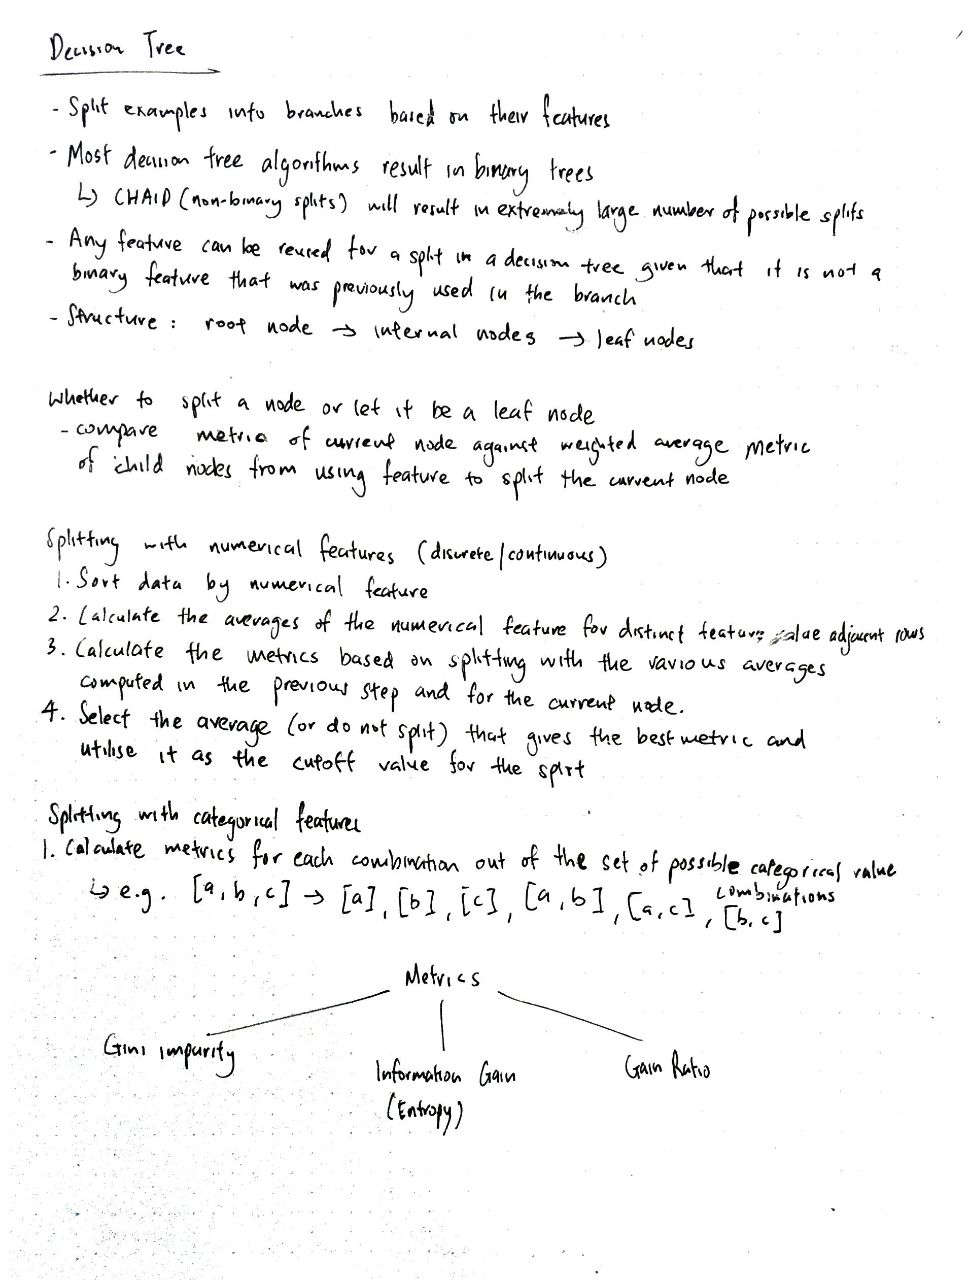 Decision Tree
- Split examples into branches based on their features
- Most decision tree algorithms result in binary trees
↳ CHAID (non-binary splits) will result in extremely large number of possible splits
- Any feature can be reused for a split in a decision tree given that it is not a
binary feature that was previously used in the branch
- Structure : root node → internal nodes → leaf nodes
Whether to split a node or let it be a leaf node
- compare metric of current node against weighted average metric
of child nodes from using feature to split the current node
Splitting with numerical features (discrete/continuous)
1. Sort data by numerical feature
2. Calculate the averages of the numerical feature for distinct feature value adjacent rows
3. Calculate the metrics based on splitting with the various averages
computed in the previous step and for the current node.
4. Select the average (or do not split) that gives the best metric and
utilise it as the cutoff value for the split
Splitting with categorical features
1. Calculate metrics for each combination out of the set of possible categorical value
combinations
↳ e.g. [a,b,c] → [a], [b], [c], [a,b], [a,c], [b,c]
Metrics
Gini impurity
Information Gain
(Entropy)
Gain Ratio